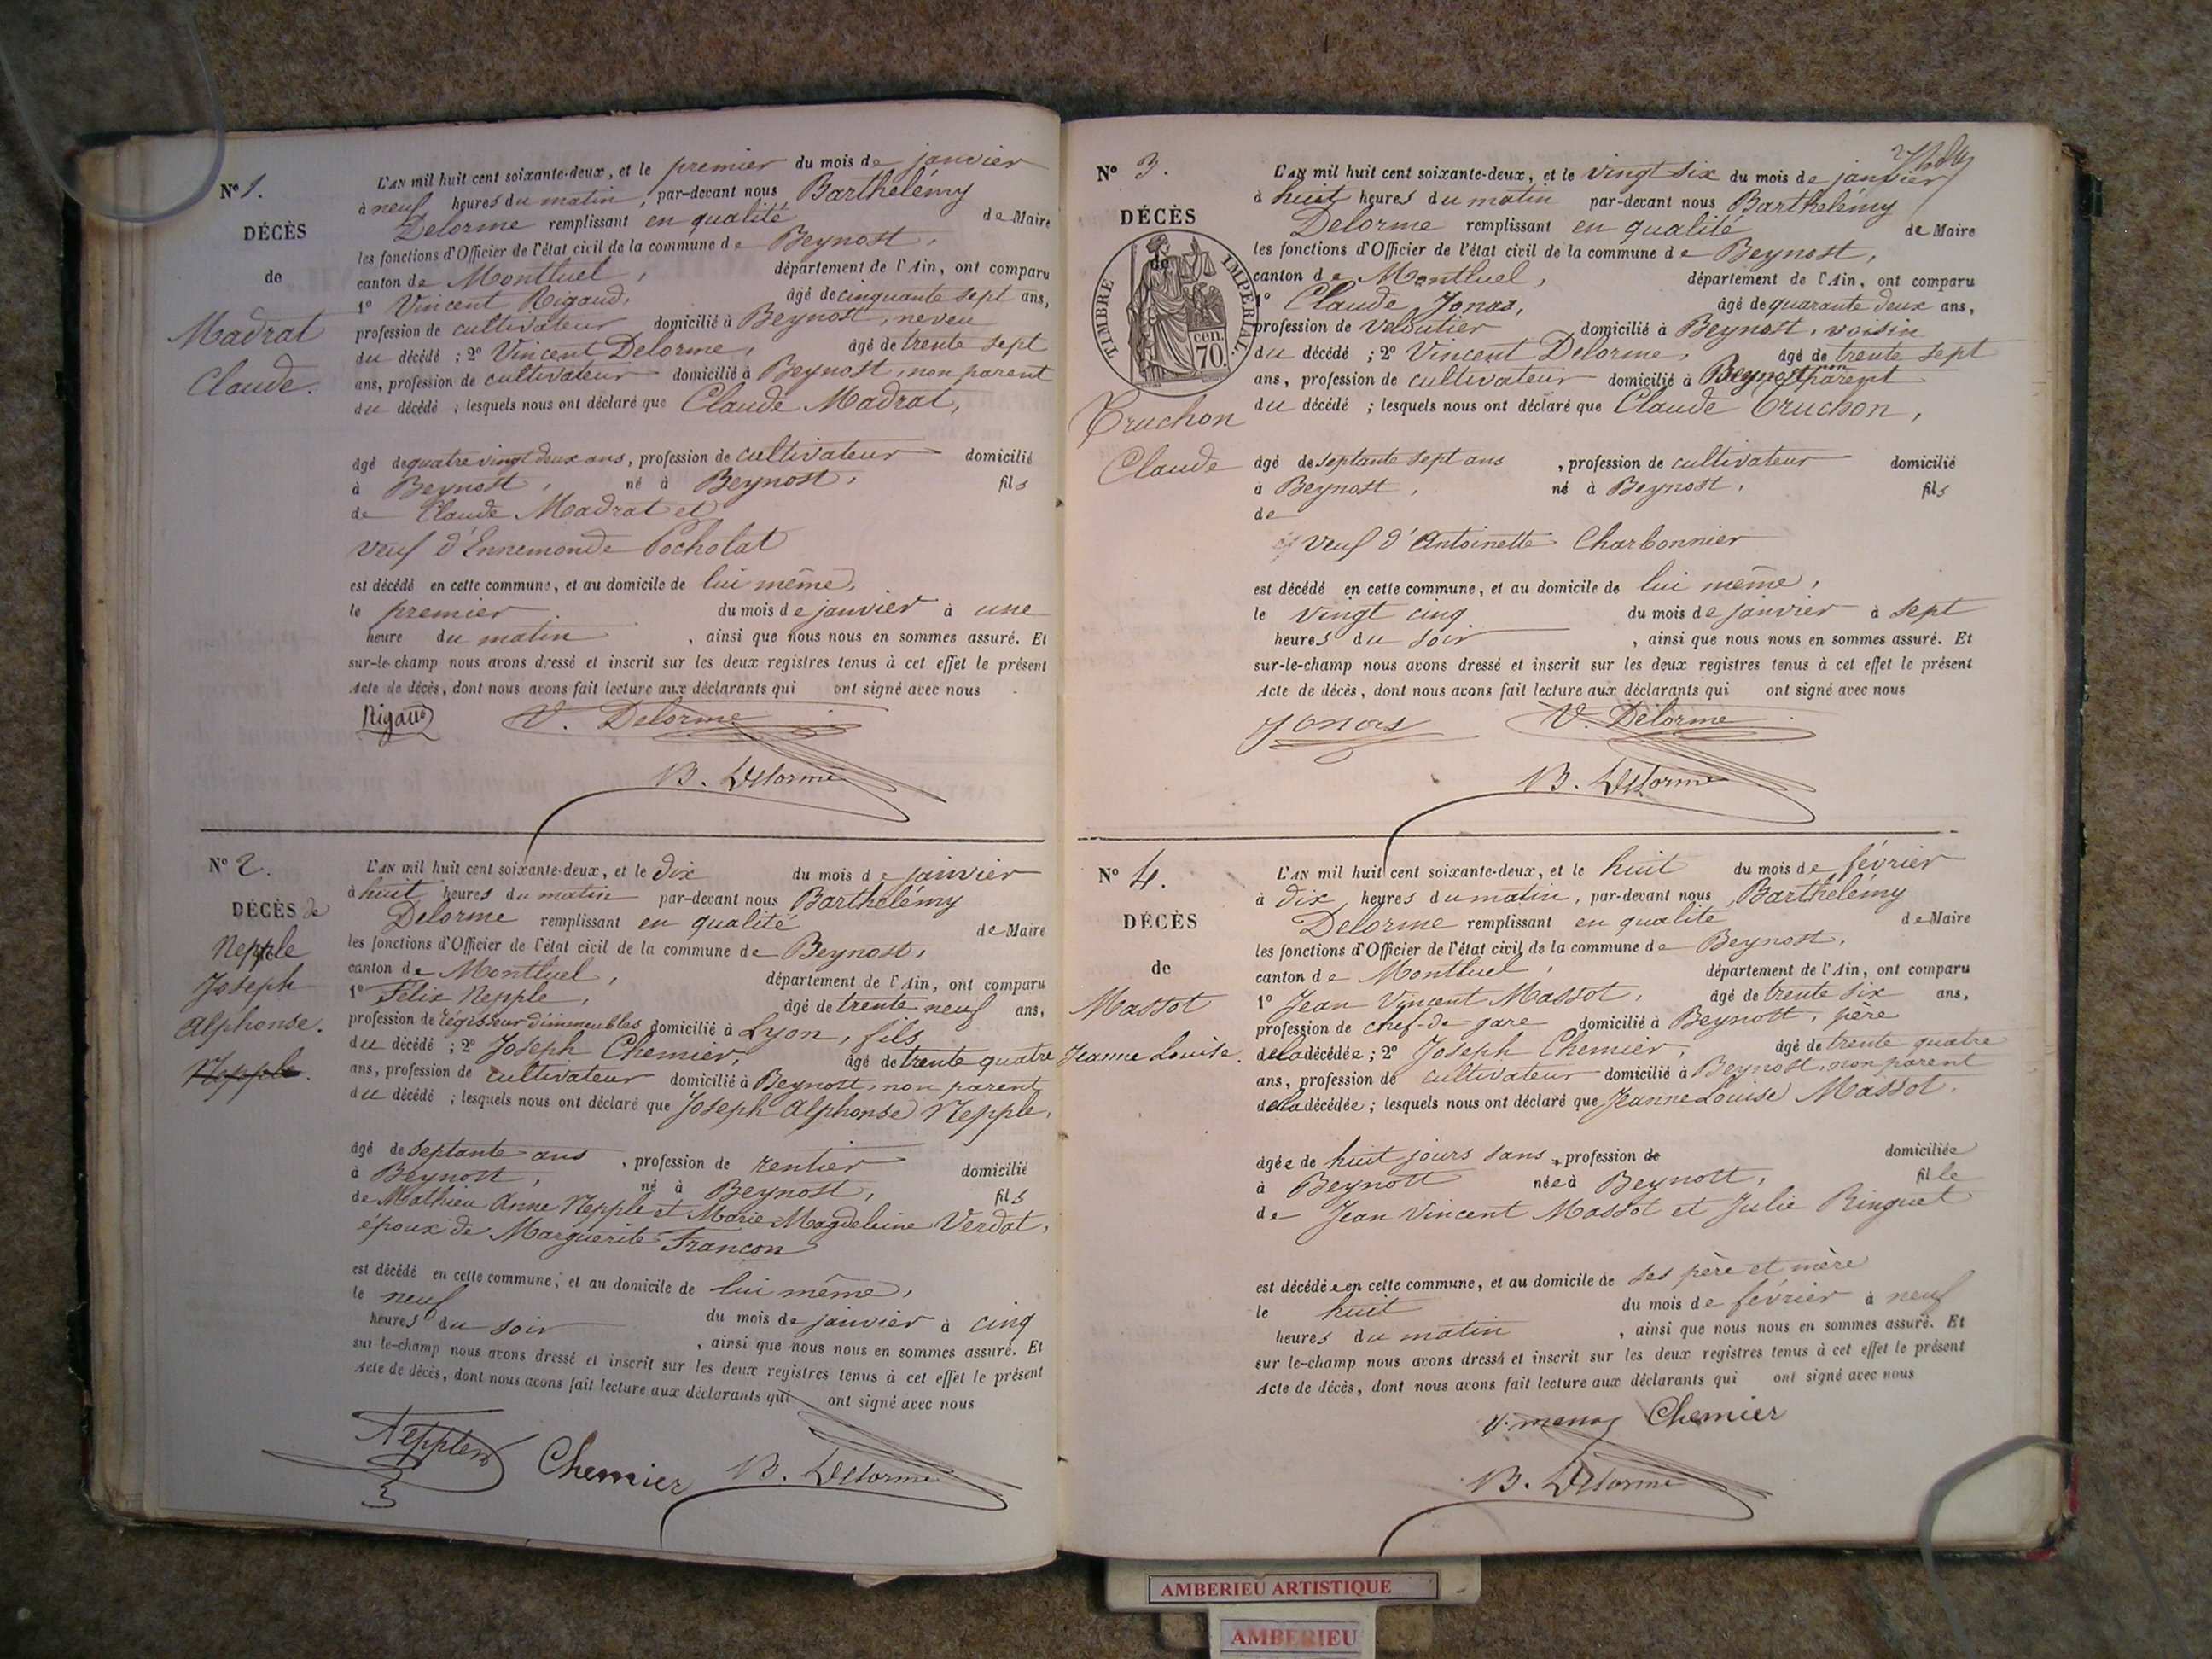 N° 1.
DÉCÈS
de
Madrat
Claude.
L'AN mil huit cent soixante-deux, et le premier du mois de janvier
à neuf heures du matin, par-devant nous Barthélémy
Delorme remplissant en qualité de Maire
les fonctions d'Officier de l'état civil de la commune de Beynost,
canton de Montluel, département de l'Ain, ont comparu
1° Vincent Rigaud, âgé de cinquante sept ans,
profession de cultivateur domicilié à Beynost, neveu
du décédé ; 2° Vincent Delorme, âgé de trente sept
ans, profession de cultivateur domicilié à Beynost, non parent
du décédé ; lesquels nous ont déclaré que Claude Madrat,
âgé de quatre vingt deux ans, profession de cultivateur domicilié
à Beynost, né à Beynost, fils
de Claude Madrat et
veuf d'Ennemonde Pocholat
est décédé en cette commune, et au domicile de lui même,
le premier du mois de janvier à une
heure du matin, ainsi que nous nous en sommes assuré. Et
sur-le-champ nous avons dressé et inscrit sur les deux registres tenus à cet effet le présent
Acte de décès, dont nous avons fait lecture aux déclarants qui ont signé avec nous
Rigaud V. Delorme
B. Delorme
N° 2.
DÉCÈS de
Nepple
Joseph
Alphonse.
Nepple.
L'AN mil huit cent soixante-deux, et le dix du mois de janvier
à huit heures du matin par-devant nous Barthélémy
Delorme remplissant en qualité de Maire
les fonctions d'Officier de l'état civil de la commune de Beynost,
canton de Montluel, département de l'Ain, ont comparu
1° Félix Nepple, âgé de trente neuf ans,
profession de régisseur d'immeubles domicilié à Lyon, fils
du décédé ; 2° Joseph Chemier, âgé de trente quatre
ans, profession de cultivateur domicilié à Beynost, non parent
du décédé ; lesquels nous ont déclaré que Joseph Alphonse Nepple,
âgé de septante ans, profession de rentier domicilié
à Beynost, né à Beynost, fils
de Mathieu Anne Nepple et Marie Magdeleine Verdat,
époux de Marguerite Francon
est décédé en cette commune, et au domicile de lui même,
le neuf du mois de janvier à cinq
heures du soir, ainsi que nous nous en sommes assuré. Et
sur le-champ nous avons dressé et inscrit sur les deux registres tenus à cet effet le présent
Acte de décès, dont nous avons fait lecture aux déclarants qui ont signé avec nous
Nepple Chemier B. Delorme
N° 3.
DÉCÈS
de
TIMBRE IMPERIAL.
70 cen.
Truchon
Claude
L'AN mil huit cent soixante-deux, et le vingt six du mois de janvier
à huit heures du matin par-devant nous Barthélémy
Delorme remplissant en qualité de Maire
les fonctions d'Officier de l'état civil de la commune de Beynost,
canton de Montluel, département de l'Ain, ont comparu
1° Claude Jonas, âgé de quarante deux ans,
profession de veloutier domicilié à Beynost, voisin
du décédé ; 2° Vincent Delorme, âgé de trente sept
ans, profession de cultivateur domicilié à Beynost non parent
du décédé ; lesquels nous ont déclaré que Claude Truchon,
âgé de septante sept ans, profession de cultivateur domicilié
à Beynost, né à Beynost, fils
de
veuf d'Antoinette Charbonnier
est décédé en cette commune, et au domicile de lui même,
le vingt cinq du mois de janvier à sept
heures du soir, ainsi que nous nous en sommes assuré. Et
sur-le-champ nous avons dressé et inscrit sur les deux registres tenus à cet effet le présent
Acte de décès, dont nous avons fait lecture aux déclarants qui ont signé avec nous
Jonas V. Delorme
B. Delorme
N° 4.
DÉCÈS
de
Massot
Jeanne Louise.
L'AN mil huit cent soixante-deux, et le huit du mois de février
à dix heures du matin, par-devant nous Barthélémy
Delorme remplissant en qualité de Maire
les fonctions d'Officier de l'état civil de la commune de Beynost,
canton de Montluel, département de l'Ain, ont comparu
1° Jean Vincent Massot, âgé de trente six ans,
profession de chef-de gare domicilié à Beynost, père
de la décédée ; 2° Joseph Chemier, âgé de trente quatre
ans, profession de cultivateur domicilié à Beynost, non parent
de la décédée ; lesquels nous ont déclaré que Jeanne Louise Massot,
âgée de huit jours sans, profession de domiciliée
à Beynost née à Beynost, fille
de Jean Vincent Massot et Julie Ringuet
est décédée en cette commune, et au domicile de ses père et mère
le huit du mois de février à neuf
heures du matin, ainsi que nous nous en sommes assuré. Et
sur le-champ nous avons dressé et inscrit sur les deux registres tenus à cet effet le présent
Acte de décès, dont nous avons fait lecture aux déclarants qui ont signé avec nous
Chemier
B. Delorme
AMBERIEU ARTISTIQUE
AMBERIEU